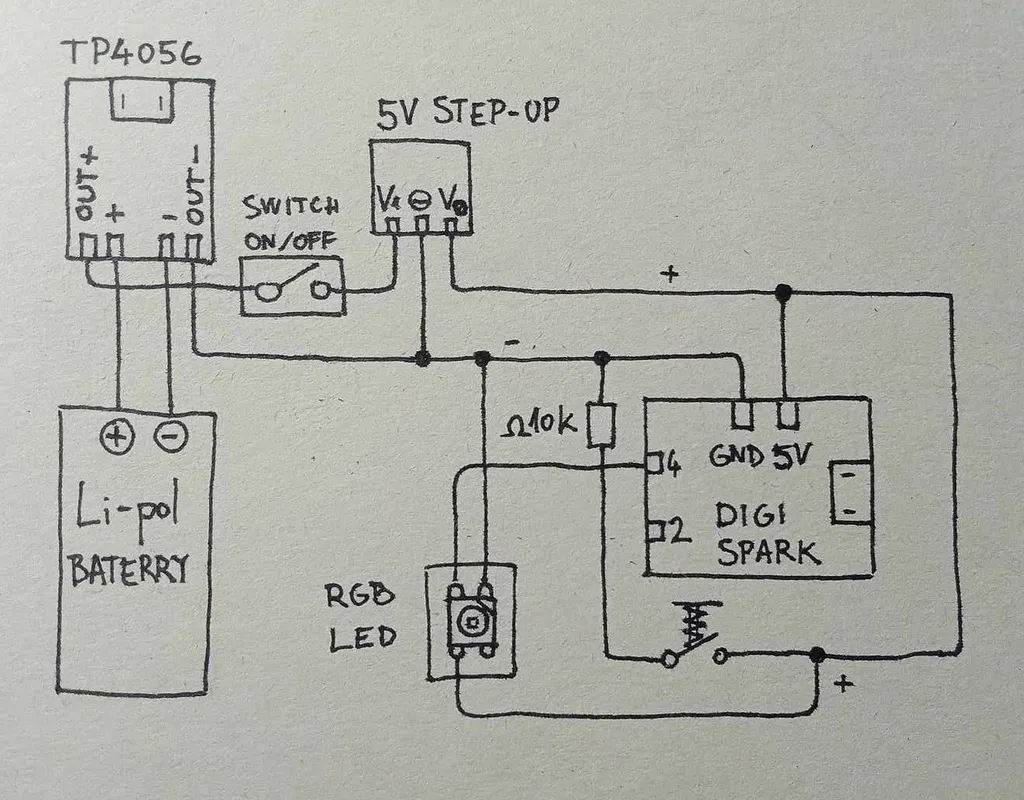 TP4056
OUT+
+
-
OUT-
5V STEP-UP
V
⊖
V
SWITCH
ON/OFF
+
-
Ω10K
4
GND 5V
2
DIGI
SPARK
+
-
Li-pol
BATERRY
RGB
LED
+